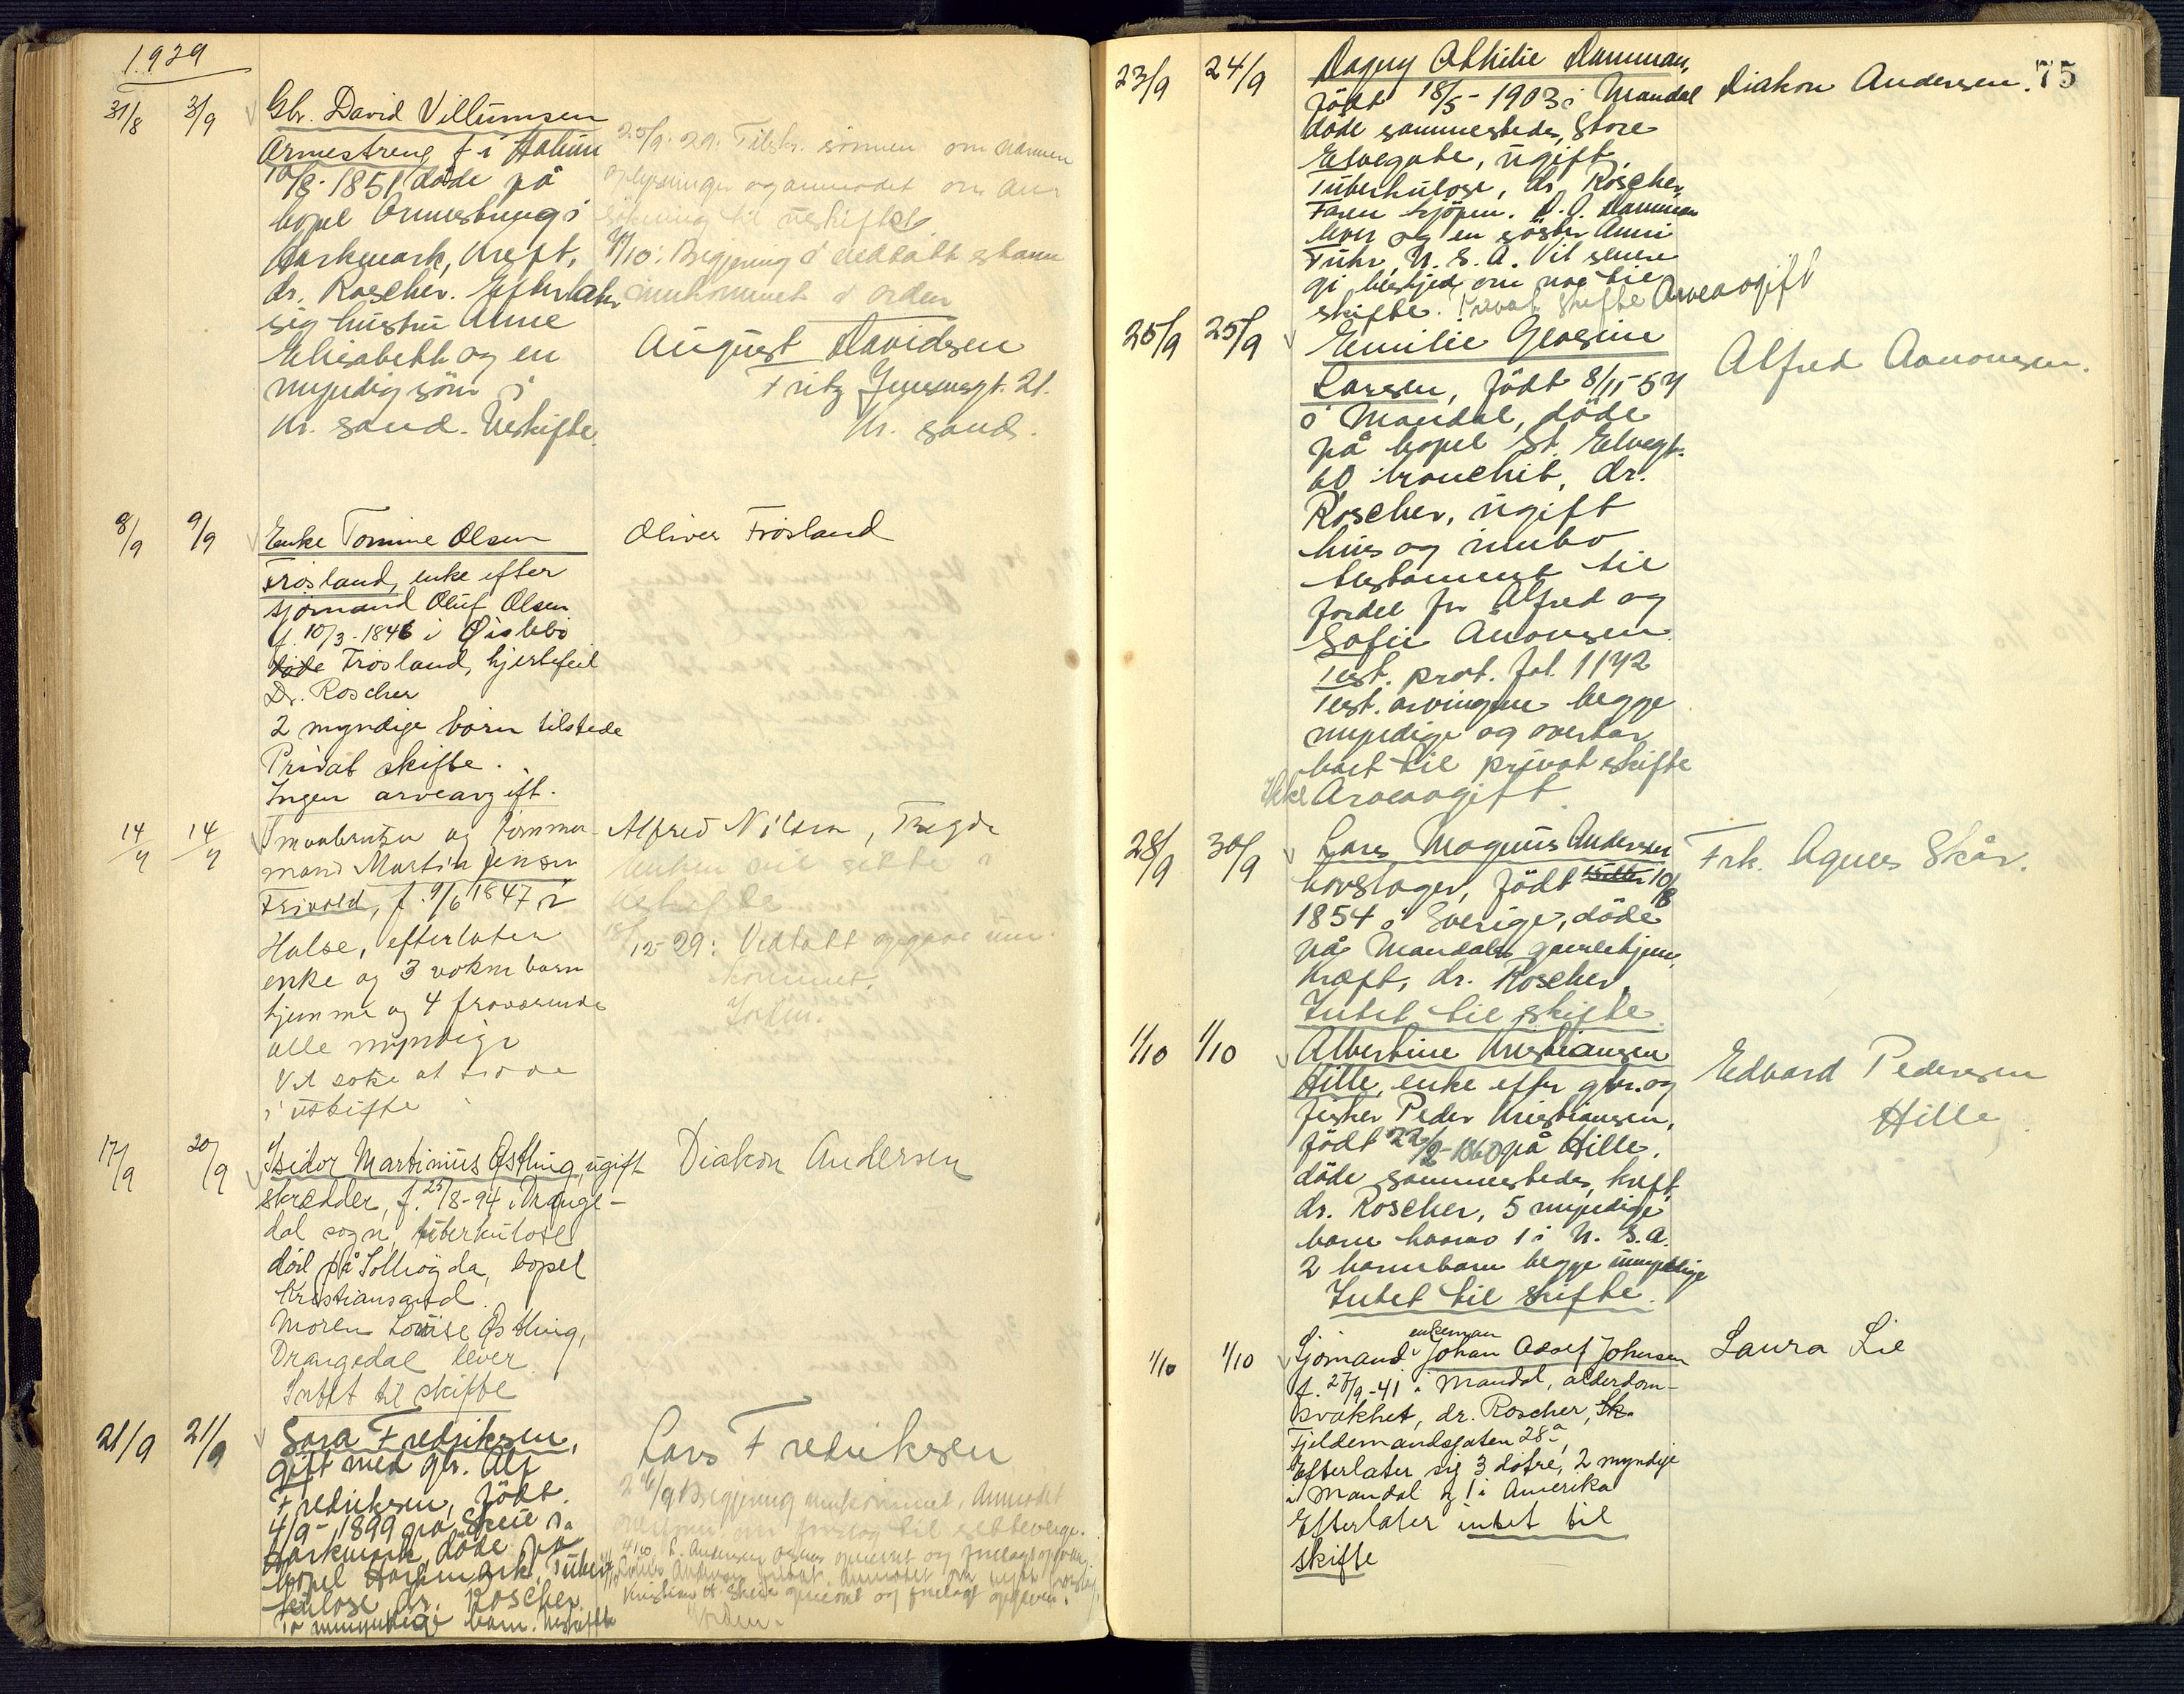 1929
31/8 3/9 Gbr. David Villumsen
Armestreng f i Halum
10/8-1851 døde på
bopel Armestreng i
Harkmark, kreft,
dr. Roscher. Efterlater
sig hustru Anne
Elisabeth og en
myndig søn i
Kr. sand. Uskifte.
25/9-29: Tilskr. sønnen om navnen
oplysninger og anmodet om an-
søkning til uskifte
/10: Begjæring i vedtatt stand
innkommet i orden
August Davidsen
Fritz Jensensgt. 21.
Kr. sand.
8/9 9/9 Enke Tomine Olsen
Frøsland, enke efter
sjømand Oluf Olsen
f. 10/3-1846 i Øislebø
døde Frøsland, hjertefeil
Dr. Roscher
2 myndige børn tilstede
Privat skifte.
Ingen arveavgift.
Oliver Frøsland
14/9 14/9 Smaabruker og tømmer-
mand Martin Jensen
Frivold, f. 9/6 1847 i
Halse, efterlater
enke og 3 voksne barn
hjemme og 4 fraværende
alle myndige
Vil søke at sidde
i uskifte
Alfred Nilsen, Tregde
Enken vil sitte i
Uskifte
12-29: Vedtatt opgave inn-
kommet.
17/9 20/9 Isidor Martinius Østling, ugift
skrædder, f. 25/8-94 i Drange-
dal sogn, tuberkulose
død på Solhøgda, bopel
Kristiansand.
Moren Louise Østling,
Drangedal lever
Intet til skifte
Diakon Andersen
21/9 21/9 Sara Fredriksen,
gift med gbr. Alf
Fredriksen, født
4/9-1899 på Skeie i
Harkmark, døde på
bopel Harkmark, Tuber-
kulose dr. Roscher.
To umyndige barn. Uskifte
Lars Fredriksen
26/9 Begjæring innkommet. Anmodet
om forslag til setteverge.
4/10 Andersen opnevnt og forelagt opgaven.
Kristian A. Skeie opnevnt og forelagt opgaven.
Orden.
75
23/9 24/9 Dagny Othilie Damman,
født 18/5-1903 i Mandal
døde sammesteds, Store
Elvegate, ugift,
Tuberkulose, dr. Roscher,
Faren kjøpm. D. G. Damman
lever og en søster Anni
Fuhr, U. S. A. Vil senere
gi beskjed om noe til
skifte. Privat skifte Arveavgift
Diakon Andersen.
25/9 25/9 Emilie Georgine
Larsen, født 8/11-54
i Mandal, døde
på bopel St. Elvegt.
60 bronchit, dr.
Roscher, ugift
hus og innbo
testamente til
fordel for Alfred og
Sofie Aanonsen.
Test. prot. fol. 1142
Test. arvingene begge
myndige og overtar
boet til privat skifte
Ikke Arveavgift.
Alfred Aanonsen.
28/9 30/9 Lars Magnus Andersen
hovslager, født 10/8
1854 i Sverige, døde
på Mandals gamlehjem,
Kræft, dr. Roscher,
Intet til skifte.
Frk. Agnes Skår.
1/10 1/10 Albertine Kristiansen
Hille, enke efter gbr. og
fisker Peder Kristiansen,
født 22/2-1860 på Hille,
døde sammesteds, kreft,
dr. Roscher, 5 myndige
barn hvorav 1 i U. S. A.
2 barnebarn begge umyndige
Intet til skifte.
Edvard Pedersen
Hille
1/10 1/10 Sjømand enkeman Johan Adolf Johnsen
f. 27/9-41 i Mandal, alderdom-
svakhet, dr. Roscher, Sk.
Fjeldemandsgaten 28a,
Efterlater sig 3 døtre, 2 myndige
i Mandal og 1 i Amerika
Efterlater intet til
skifte
Laura Lie